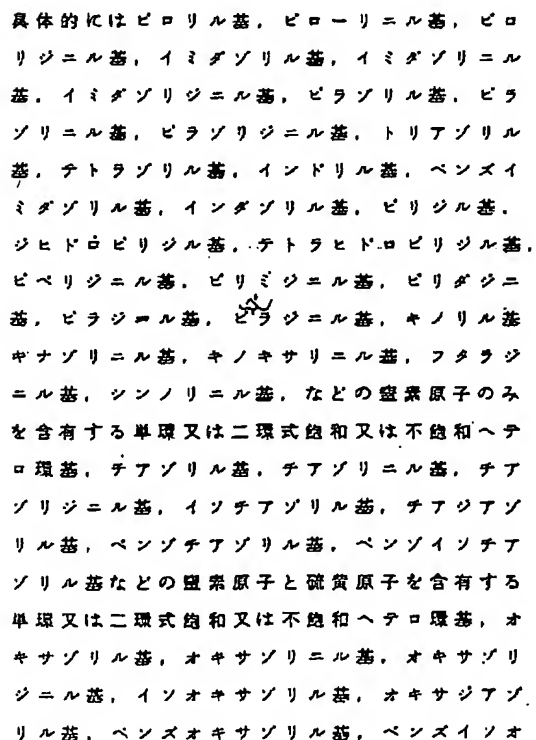 具体的にはピロリル基，ピローリニル基，ピロ
リジニル基，イミダゾリル基，イミダゾリニル
基，イミダゾリジニル基，ピラゾリル基，ピラ
ゾリニル基，ピラゾリジニル基，トリアゾリル
基，テトラゾリル基，インドリル基，ベンズイ
ミダゾリル基，インダゾリル基，ピリジル基，
ジヒドロピリジル基，テトラヒドロピリジル基，
ピペリジニル基，ピリミジニル基，ピリダジニ
基，ピラジニル基，ピラジニル基，キノリル基
キナゾリニル基，キノキサリニル基，フタラジ
ニル基，シンノリニル基，などの窒素原子のみ
を含有する単環又は二環式飽和又は不飽和ヘテ
ロ環基，チアゾリル基，チアゾリニル基，チア
ゾリジニル基，イソチアゾリル基，チアジアゾ
リル基，ベンゾチアゾリル基，ベンゾイソチア
ゾリル基などの窒素原子と硫黄原子を含有する
単環又は二環式飽和又は不飽和ヘテロ環基，オ
キサゾリル基，オキサゾリニル基，オキサゾリ
ジニル基，イソオキサゾリル基，オキサジアゾ
リル基，ベンズオキサゾリル基，ベンズイソオ